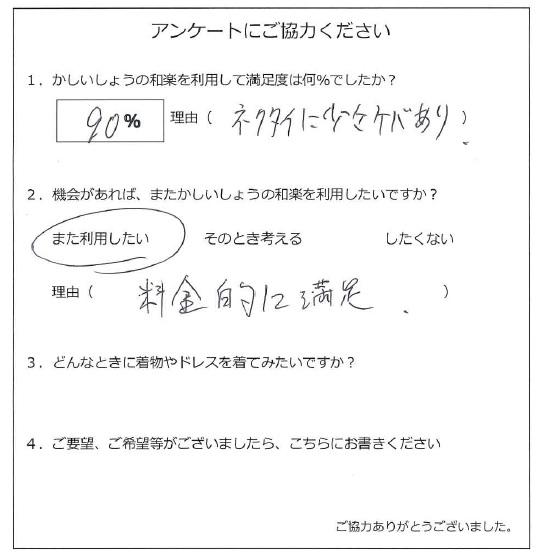 アンケートにご協力ください
1．かしいしょうの和楽を利用して満足度は何%でしたか？
90% 理由（ ネクタイに少々ケバあり ）
2．機会があれば、またかしいしょうの和楽を利用したいですか？
また利用したい そのとき考える したくない
理由（ 料金的に満足. ）
3．どんなときに着物やドレスを着てみたいですか？
4．ご要望、ご希望等がございましたら、こちらにお書きください
ご協力ありがとうございました。